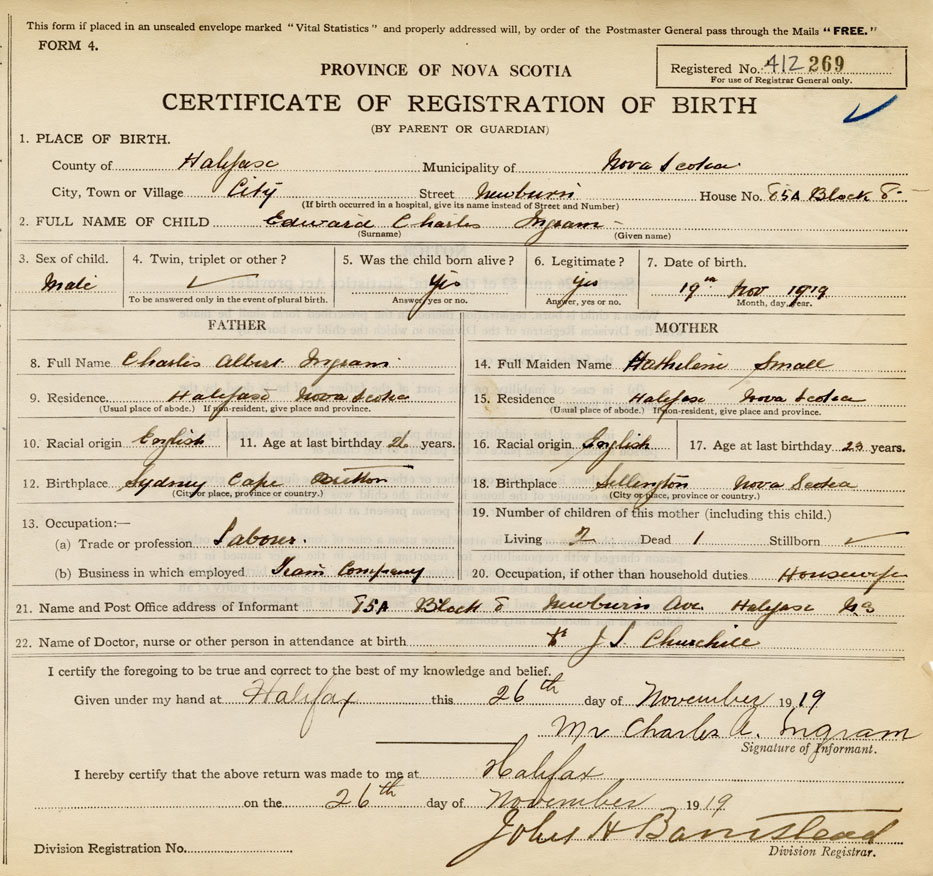 This form if placed in an unsealed envelope marked "Vital Statistics" and properly addressed will, by order of the Postmaster General pass through the Mails "FREE."
FORM 4.
Registered No. 412 269
For use of Registrar General only.
PROVINCE OF NOVA SCOTIA
CERTIFICATE OF REGISTRATION OF BIRTH
(BY PARENT OR GUARDIAN)
1. PLACE OF BIRTH.
County of Halifax Municipality of Nova Scotia
City, Town or Village City Street Newburn House No. 85A Block 8
(If birth occurred in a hospital, give its name instead of Street and Number)
2. FULL NAME OF CHILD Edward Charles Ingram
(Surname) (Given name)
3. Sex of child. 4. Twin, triplet or other? 5. Was the child born alive? 6. Legitimate? 7. Date of birth.
Male ✓ Yes Yes 19th Nov 1919
To be answered only in the event of plural birth. Answer, yes or no. Answer, yes or no. Month, day, year.
FATHER
8. Full Name Charles Albert Ingram
9. Residence. Halifax Nova Scotia
(Usual place of abode.) If non-resident, give place and province.
10. Racial origin English 11. Age at last birthday 26 years.
12. Birthplace Sydney Cape Britton
(City or place, province or country.)
13. Occupation:—
(a) Trade or profession. Laborer.
(b) Business in which employed Tram Company
MOTHER
14. Full Maiden Name Kathelene Small
15. Residence Halifax Nova Scotia
(Usual place of abode.) If non-resident, give place and province.
16. Racial origin English 17. Age at last birthday 23 years.
18. Birthplace Nova Scotia
(City or place, province or country.)
19. Number of children of this mother (including this child.)
Living 2 Dead 1 Stillborn ✓
20. Occupation, if other than household duties Housewife
21. Name and Post Office address of Informant 85A Block 8 Newburn Ave Halifax NS
22. Name of Doctor, nurse or other person in attendance at birth Dr J S Churchill
I certify the foregoing to be true and correct to the best of my knowledge and belief.
Given under my hand at Halifax this 26th day of November 1919
Mr Charles A. Ingram
Signature of Informant.
I hereby certify that the above return was made to me at Halifax
on the 26th day of November 1919.
John H Barnstead
Division Registration No. Division Registrar.